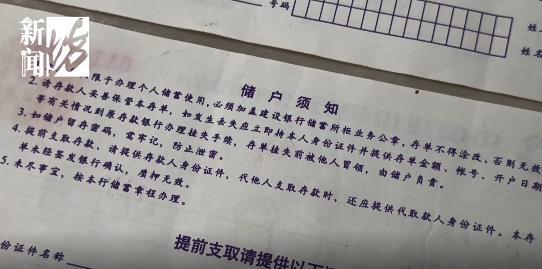 新闻坊
号码
姓名
储户须知
限于办理个人储蓄使用,必须加盖建设银行储蓄所柜业务公章,存单不得涂改,否则无效
2. 请存款人妥善保管本存单,如发生丢失应立即持本人身份证件并提供存单金额、帐号、开户日期
等有关情况到原存款银行办理挂失手续,存单挂失前被他人冒领,由储户负责。
3. 如储户留存密码,需牢记,防止泄密。
4. 提前支取存款,请提供存款人身份证件,代他人支取存款时,还应提供代取款人身份证件。本存
单未经签发银行确认,质押无效。
5. 未尽事宜,按本行储蓄章程办理。
提前支取请提供以下
份证件名称